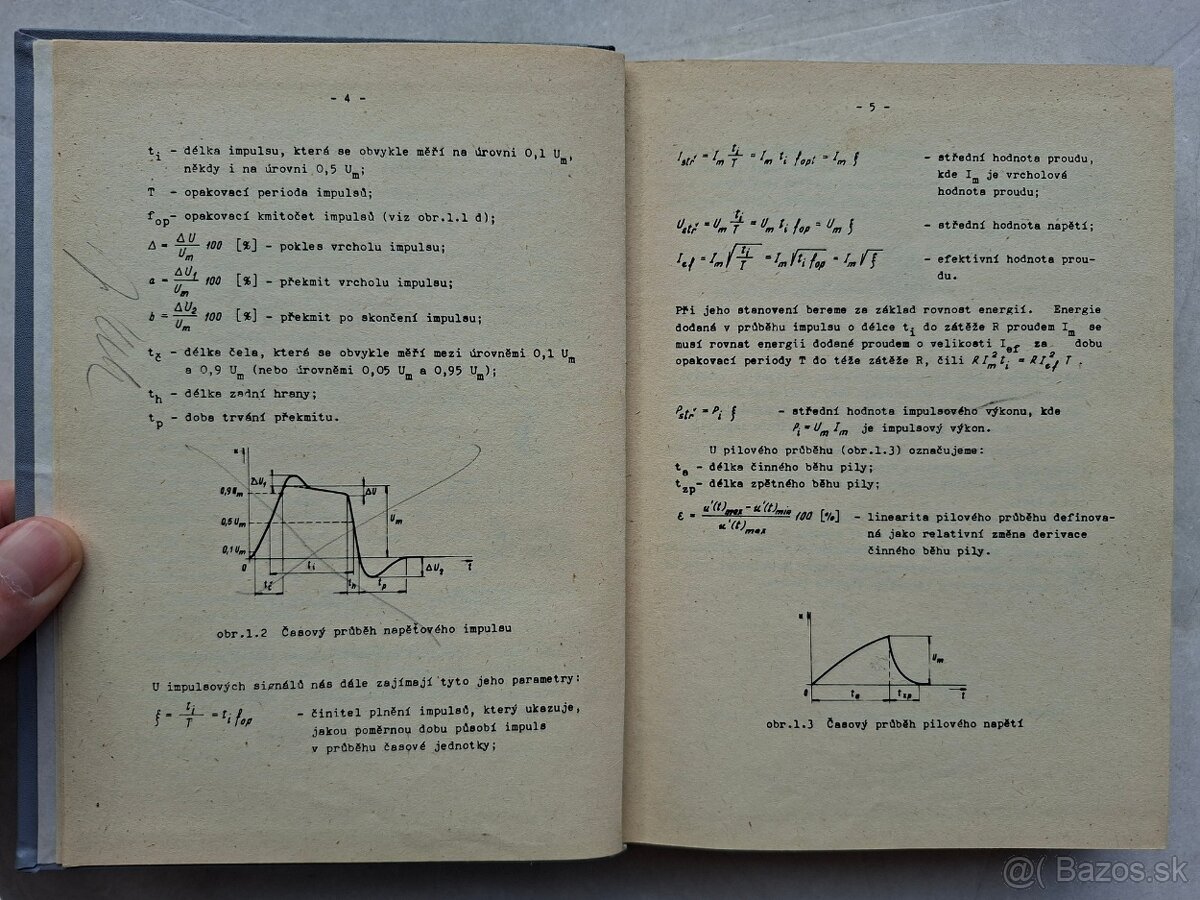 - 4 -
t_i - délka impulsu, která se obvykle měří na úrovni 0,1 U_m,
někdy i na úrovni 0,5 U_m;
T - opakovací perioda impulsů;
f_op- opakovací kmitočet impulsů (viz obr.1.1 d);
Δ = ΔU/U_m 100 [%] - pokles vrcholu impulsu;
a = ΔU_1/U_m 100 [%] - překmit vrcholu impulsu;
b = ΔU_2/U_m 100 [%] - překmit po skončení impulsu;
t_č - délka čela, která se obvykle měří mezi úrovněmi 0,1 U_m
a 0,9 U_m (nebo úrovněmi 0,05 U_m a 0,95 U_m);
t_h - délka zadní hrany;
t_p - doba trvání překmitu.
u
ΔU_1
0,9U_m
ΔU
0,5U_m
U_m
0,1U_m
0
t_i
t_č
t_h
t_p
ΔU_2
t
obr.1.2 Časový průběh napěťového impulsu
U impulsových signálů nás dále zajímají tyto jeho parametry:
ξ = t_i/T = t_i f_op - činitel plnění impulsů, který ukazuje,
jakou poměrnou dobu působí impuls
v průběhu časové jednotky;
- 5 -
I_stř = I_m t_i/T = I_m t_i f_opt = I_m ξ - střední hodnota proudu,
kde I_m je vrcholová
hodnota proudu;
U_stř = U_m t_i/T = U_m t_i f_op = U_m ξ - střední hodnota napětí;
I_ef = I_m √(t_i/T) = I_m √(t_i f_op) = I_m √ξ - efektivní hodnota prou-
du.
Při jeho stanovení bereme za základ rovnost energií. Energie
dodaná v průběhu impulsu o délce t_i do zátěže R proudem I_m se
musí rovnat energii dodané proudem o velikosti I_ef za dobu
opakovací periody T do téže zátěže R, čili R I_m^2 t_i = R I_ef^2 T.
P_stř = P_i ξ - střední hodnota impulsového výkonu, kde
P_i = U_m I_m je impulsový výkon.
U pilového průběhu (obr.1.3) označujeme:
t_a - délka činného běhu pily;
t_zp- délka zpětného běhu pily;
ε = (u'(t)_max - u'(t)_min)/u'(t)_max 100 [%] - linearita pilového průběhu definova-
ná jako relativní změna derivace
činného běhu pily.
u
U_m
0
t_a
t_zp
t
obr.1.3 Časový průběh pilového napětí
@( Bazos.sk